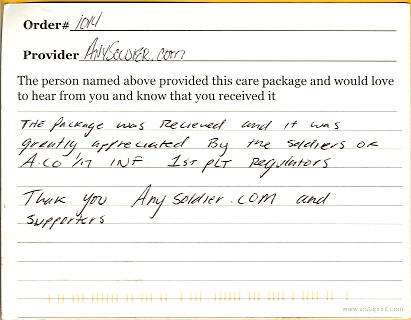 Order# 1014
Provider AnySoldier.com
The person named above provided this care package and would love
to hear from you and know that you received it
THE Package was Recieved and it was
greatly appreciated By the Soldiers of
A.CO 1/17 INF 1st PLT Regulators
Thank you Any Soldier.COM and
Supporters